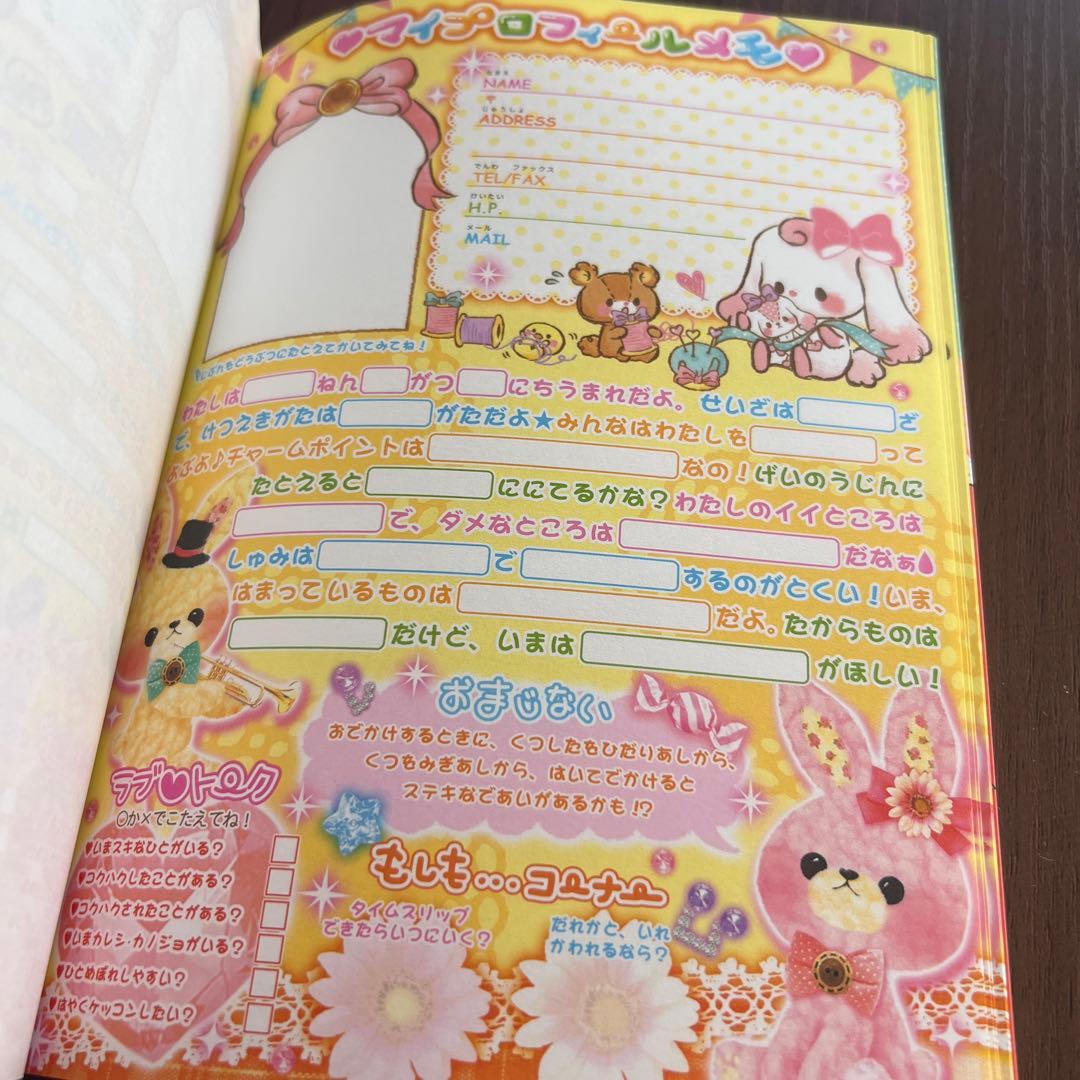 ♥マイプロフィールメモ♥
なまえ
NAME
〒
じゅうしょ
ADDRESS
でんわ ファックス
TEL/FAX
けいたい
H.P.
メール
MAIL
じぶんもどうぶつにたとえてかいてみてね！
わたしは ねん がつ にちうまれだよ。せいざは ざ
で、けつえきがたは がただよ★みんなはわたしを って
よぶよ♪チャームポイントは なの！げいのうじんに
たとえると ににてるかな？わたしのイイところは
で、ダメなところは だなぁ
しゅみは で するのがとくい！いま、
はまっているものは だよ。たからものは
だけど、いまは がほしい！
おまじない
おでかけするときに、くつしたをひだりあしから、
くつをみぎあしから、はいてでかけると
ステキなであいがあるかも!?
ラブ♥トーク
○か×でこたえてね！
♥いまスキなひとがいる？
♥コクハクしたことがある？
♥コクハクされたことがある？
♥いまカレシ・カノジョがいる？
♥ひとめぼれしやすい？
♥はやくケッコンしたい？
もしも…コーナー
タイムスリップ
できたらいつにいく？
だれかと、いれ
かわれるなら？